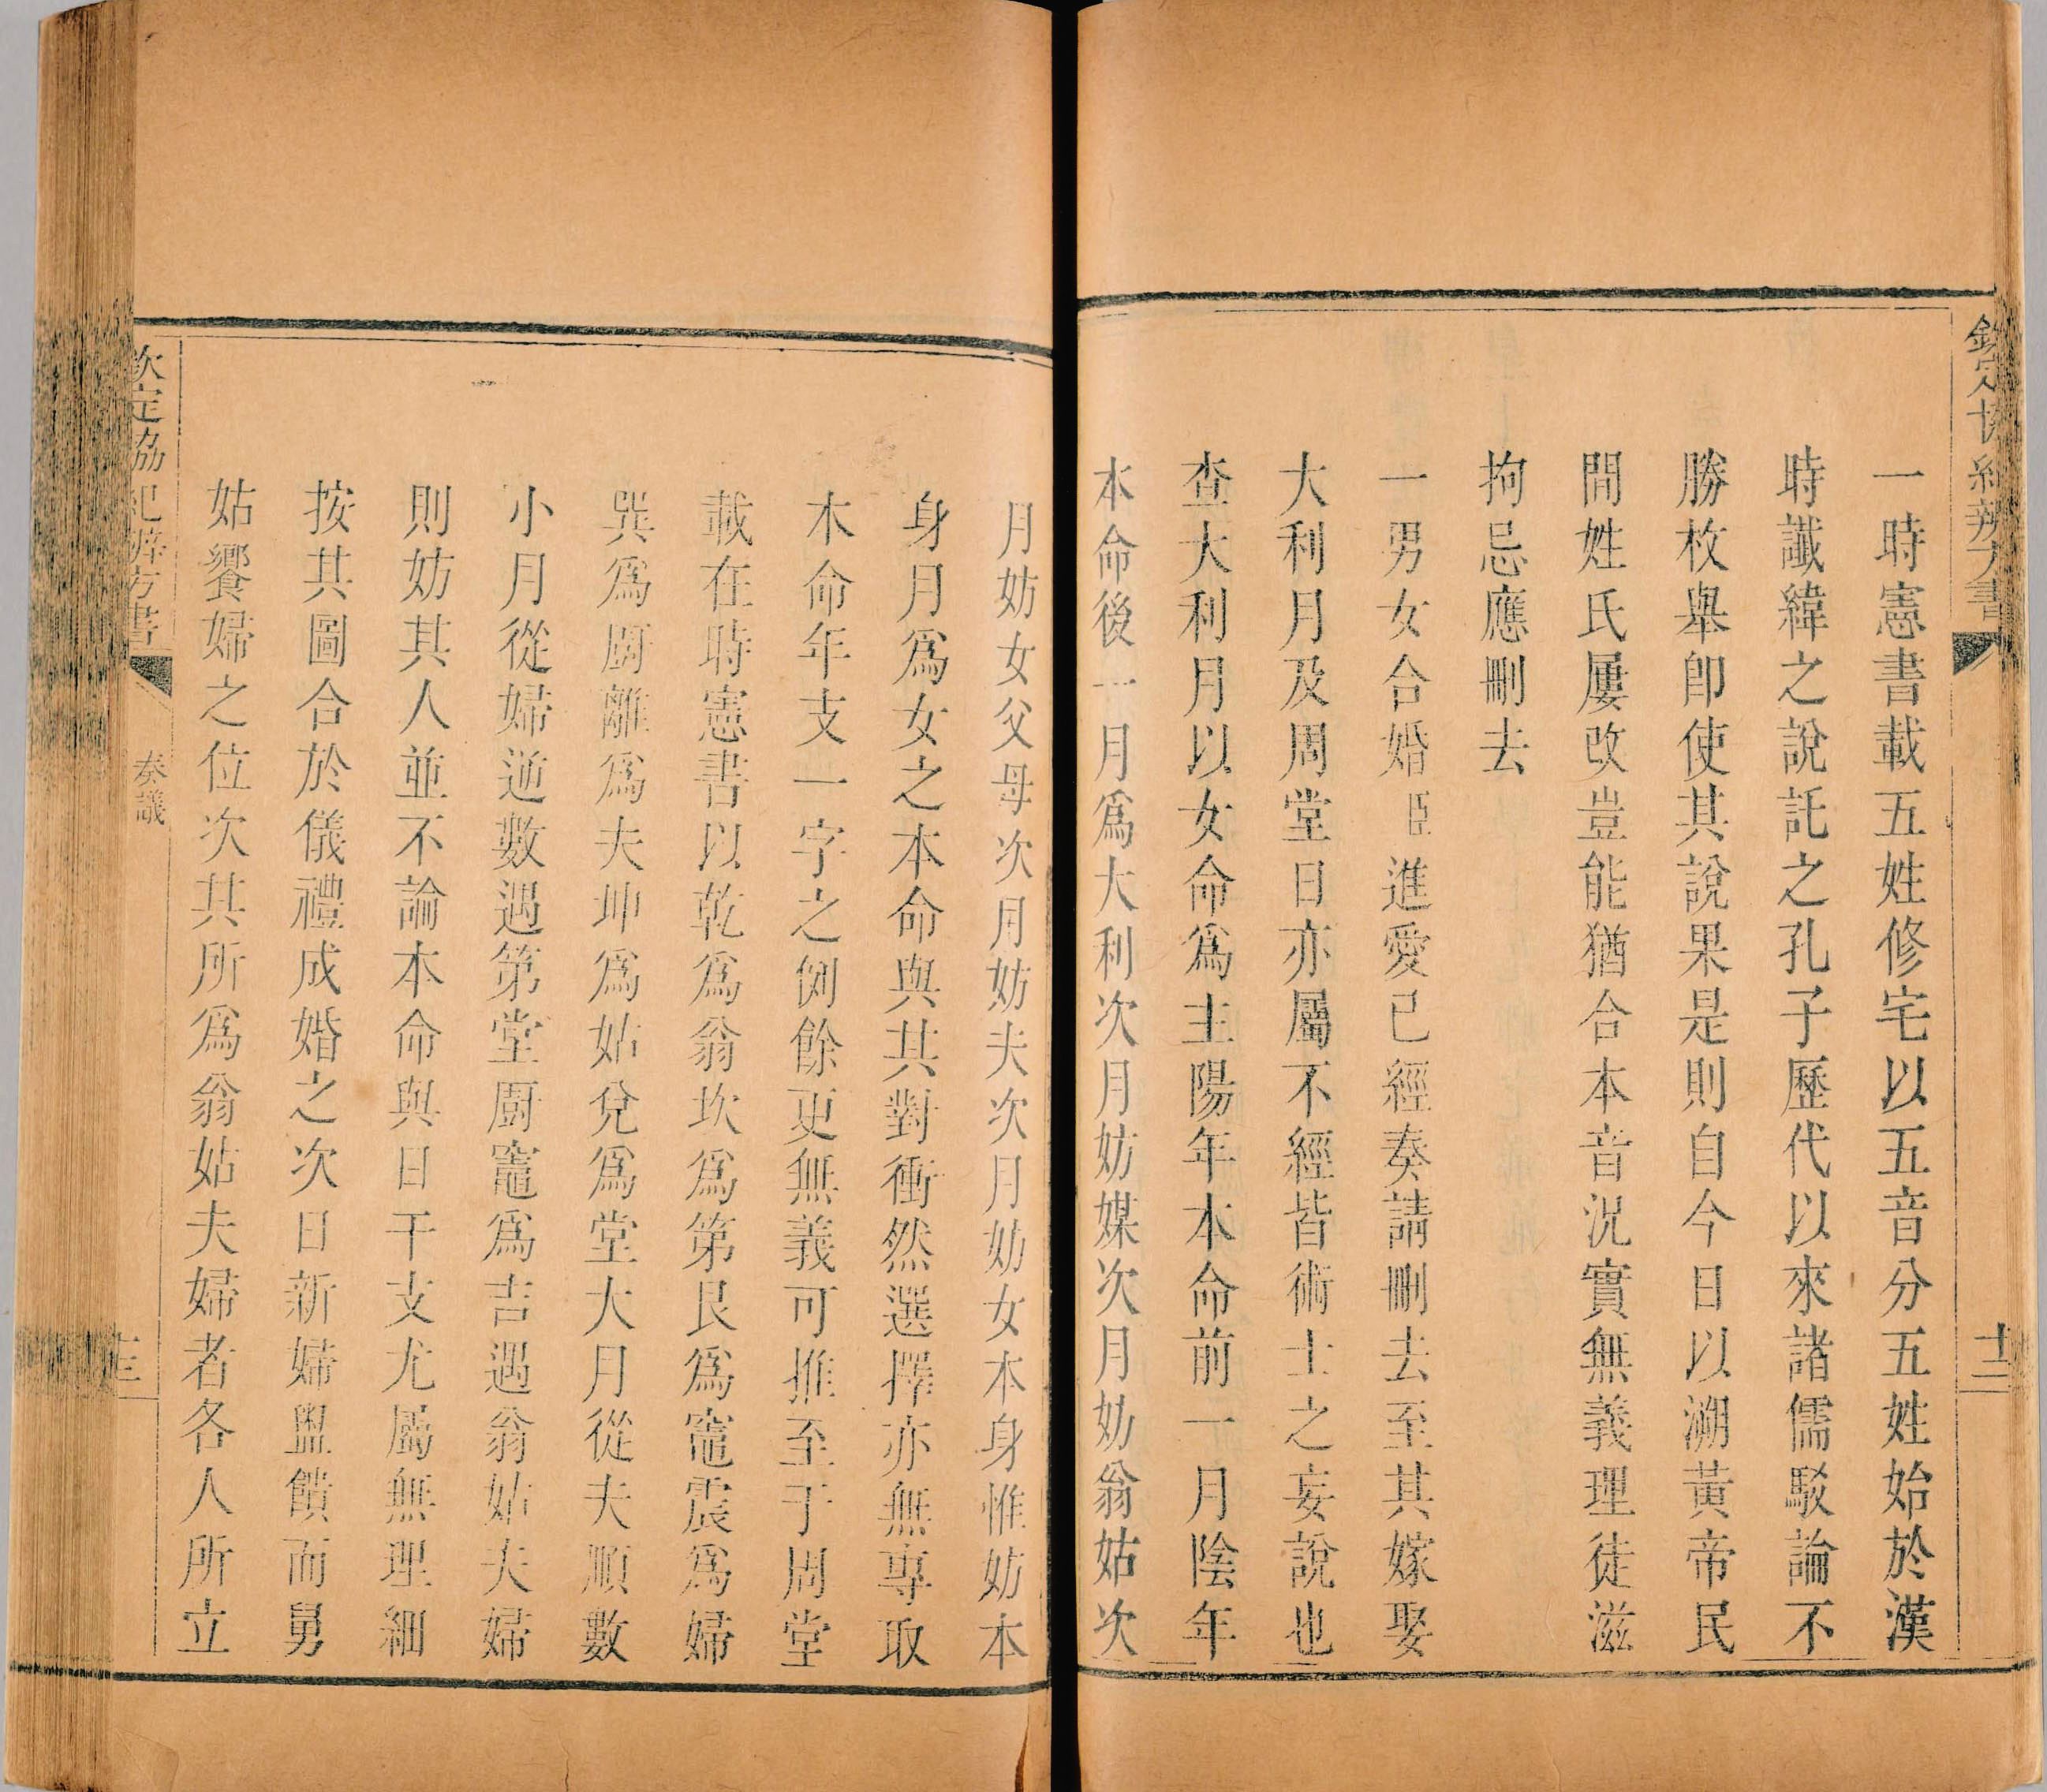 一時憲書載五姓修宅以五音分五姓始於漢
時讖緯之說託之孔子歷代以來諸儒駁論不
勝枚舉卽使其說果是則自今日以溯黃帝民
間姓氏屢改豈能猶合本音況實無義理徒滋
拘忌應刪去
一男女合婚臣進愛已經奏請刪去至其嫁娶
大利月及周堂日亦屬不經皆術士之妄說也
查大利月以女命爲主陽年本命前一月陰年
本命後一月爲大利次月妨媒次月妨翁姑次
十二
月妨女父母次月妨夫次月妨女本身惟妨本
身月爲女之本命與其對衝然選擇亦無專取
本命年支一字之例餘更無義可推至于周堂
載在時憲書以乾爲翁坎爲第艮爲竈震爲婦
巽爲廚離爲夫坤爲姑兌爲堂大月從夫順數
小月從婦逆數遇第堂廚竈爲吉遇翁姑夫婦
則妨其人並不論本命與日干支尤屬無理細
按其圖合於儀禮成婚之次日新婦盥饋而舅
姑饗婦之位次其所爲翁姑夫婦者各人所立
欽定協紀辨方書
奏議